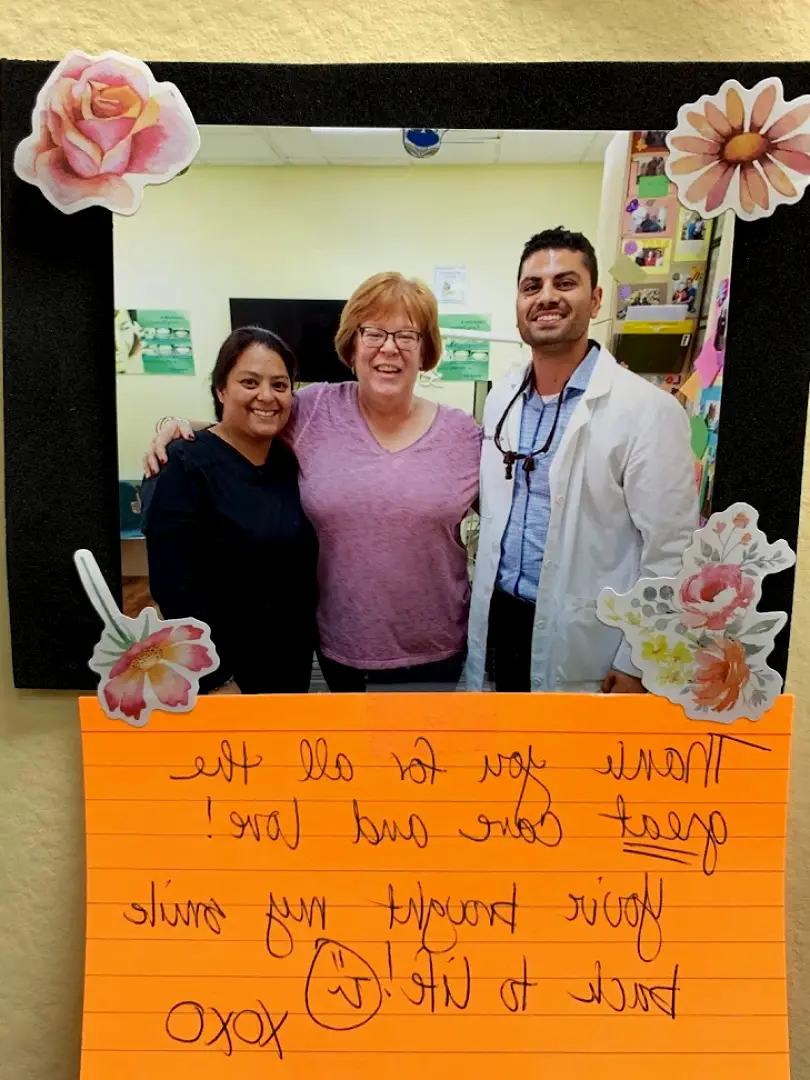 Thank you for all the
great care and love!
You've brought my smile
back to life!
XOXO